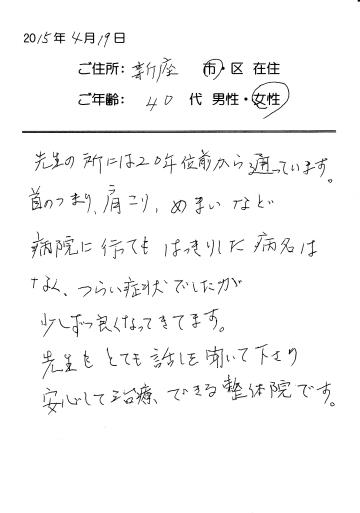 2015年4月19日
ご住所: 新座 市・区 在住
ご年齢: 40 代 男性・女性
先生の所には20年位前から通っています。
首のつまり、肩こり、めまいなど
病院に行ってもはっきりした病名は
なく、つらい症状でしたが
少しずつ良くなってきてます。
先生もとても話しを聞いて下さり
安心して治療、できる整体院です。